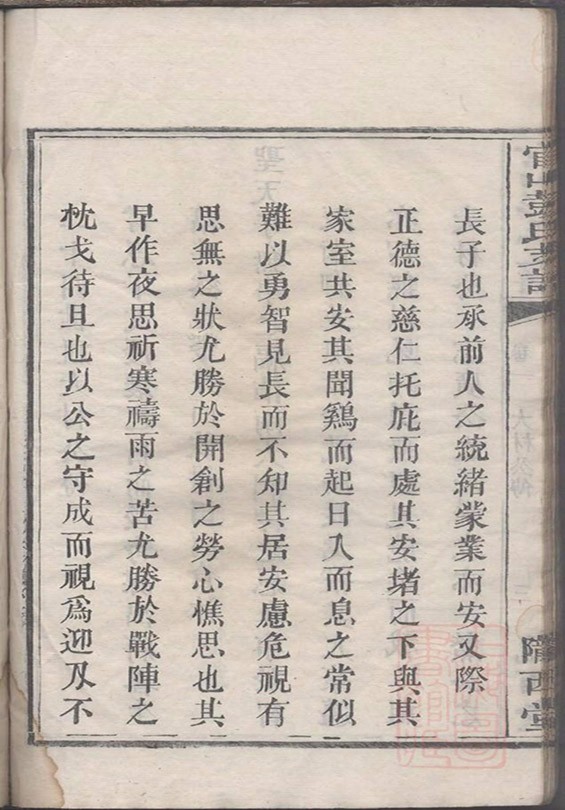 長子也承前人之統緒蒙業而安又際
正德之慈仁托庇而處其安堵之下與其
家室共安其聞鷄而起日入而息之常似
難以勇智見長而不知其居安慮危視有
思無之狀尤勝於開創之勞心憔思也其
早作夜思祈寒禱雨之苦尤勝於戰陣之
枕戈待旦也以公之守成而視爲迎刃不
彭氏支譜
隴西堂